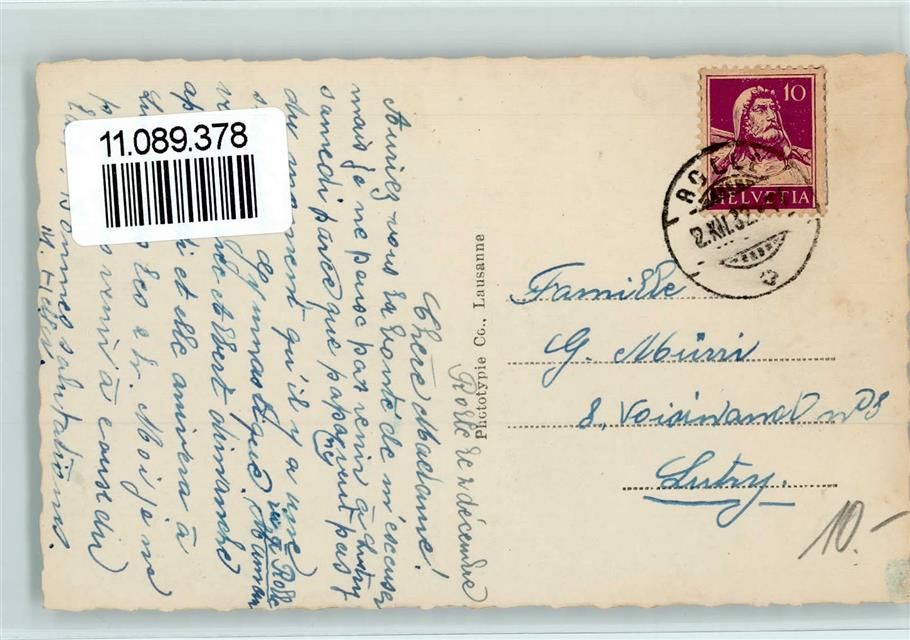 11.089.378
10
HELVETIA
2.XII.32
Phototypie Co., Lausanne
Rolle le 2 décembre
Chère Madame!
Auriez-vous la bonté de m'excuser
mais je ne peux pas venir à Lutry
samedi parce que papa ne vient pas
du moment qu'il y a une
gymnastique à Rolle. Maman
et Albert dimanche
et elle arrivera à
Moi je ne
venir à cause du
Bonnes salutations.
Famille
G. Mürri
Voisinand
Lutry.
10.-